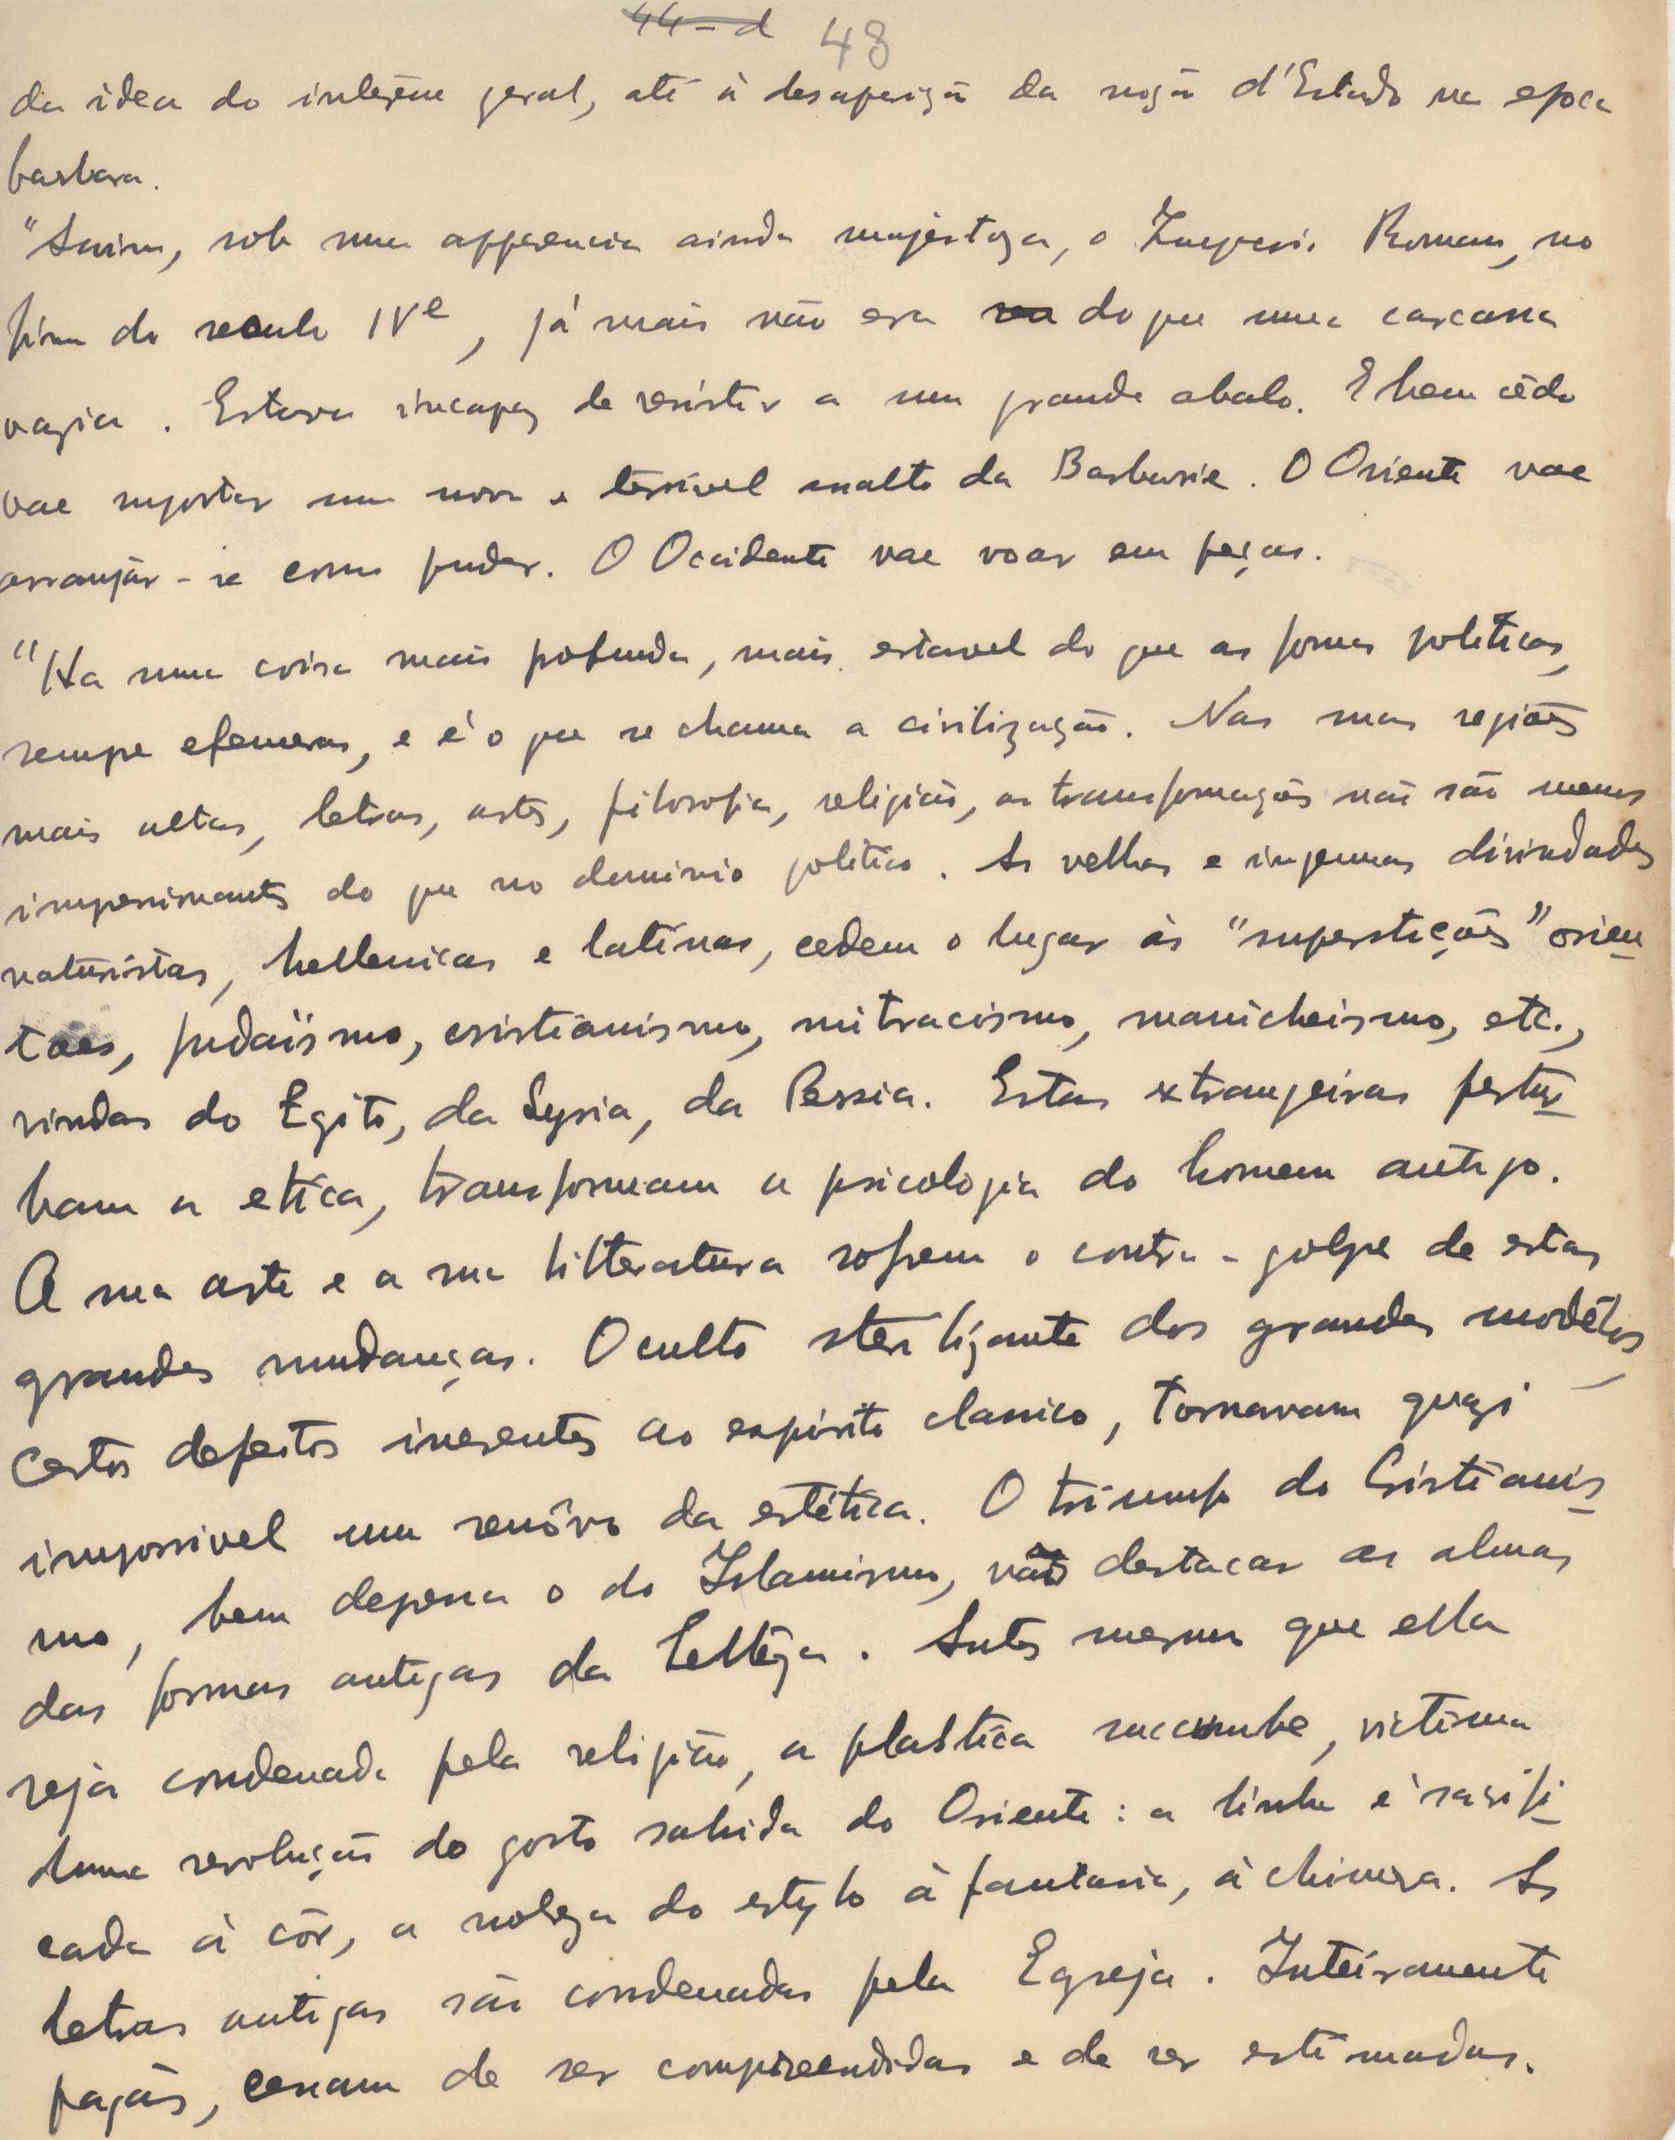 44-d 48
da idea do interêsse geral, até à desaparição da noção d'Estado na epoca
barbara.
"Assim, sob uma apparencia ainda majestoza, o Imperio Romano, no
fim do seculo IVe, já mais não era do que uma carcassa
vazia. Estava incapaz de resistir a um grande abalo. E bem cêdo
vae suportar um novo e terrivel assalto da Barbarie. O Oriente vae
arranjar-se como puder. O Occidente vae voar em peças.
"Ha uma coisa mais profunda, mais estavel do que as formas politicas,
sempre efemeras, e é o que se chama a civilização. Nas suas regiões
mais altas, letras, artes, filosofia, religião, as transformações não são menos
impressionantes do que no dominio politico. As velhas e ingenuas divindades
naturistas, hellenicas e latinas, cedem o lugar às "superstições" orien
taes, judaïsmo, cristianismo, mitracismo, manicheismo, etc.,
vindas do Egito, da Syria, da Persia. Estas extranjeiras pertur
bam a etica, transformam a psicologia do homem antigo.
A sua arte e a sua litteratura sofrem o contra-golpe de estas
grandes mudanças. O culto sterilizante dos grandes modêlos,
certos defeitos inerentes ao espírito classico, tornavam quazi
impossivel um renôvo da estética. O triumfo do Cristianis
mo, bem depressa o do Islamismo, vão destacar as almas
das formas antigas da bellêza. Antes mesmo que ella
seja condenada pela religião, a plastica succumbe, victima
duma revolução do gosto sahida do Oriente: a linha é sacrifi
cada à côr, a nobreza do estylo à fantasia, à chimera. As
letras antigas são condenadas pela Egreja. Inteiramente
pagãs, cessam de ser compreendidas e de ser estimadas.